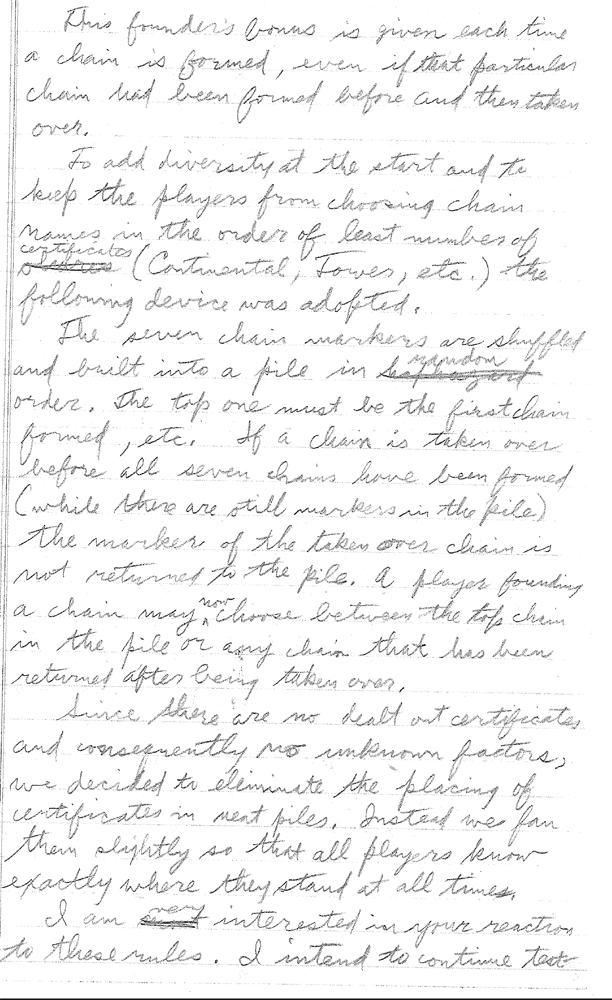 This founder's bonus is given each time
a chain is formed, even if that particular
chain had been formed before and then taken
over.
To add diversity at the start and to
keep the players from choosing chain
names in the order of least number of
certificates
shares (Continental, Tower, etc.) the
following device was adopted.
The seven chain markers are shuffled
random
and built into a pile in haphazard
order. The top one must be the first chain
formed, etc. If a chain is taken over
before all seven chains have been formed
(while there are still markers in the pile)
the marker of the taken over chain is
not returned to the pile. A player founding
now
a chain may choose between the top chain
in the pile or any chain that has been
returned after being taken over.
Since there are no dealt out certificates
and consequently no unknown factors,
we decided to eliminate the placing of
certificates in neat piles. Instead we fan
them slightly so that all players know
exactly where they stand at all times.
very
I am interested in your reaction
to these rules. I intend to continue test-